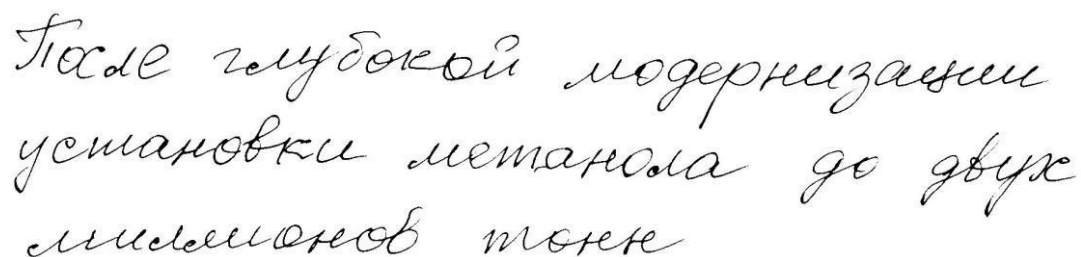 После глубокой модернизации
установки метанола до двух
миллионов тонн